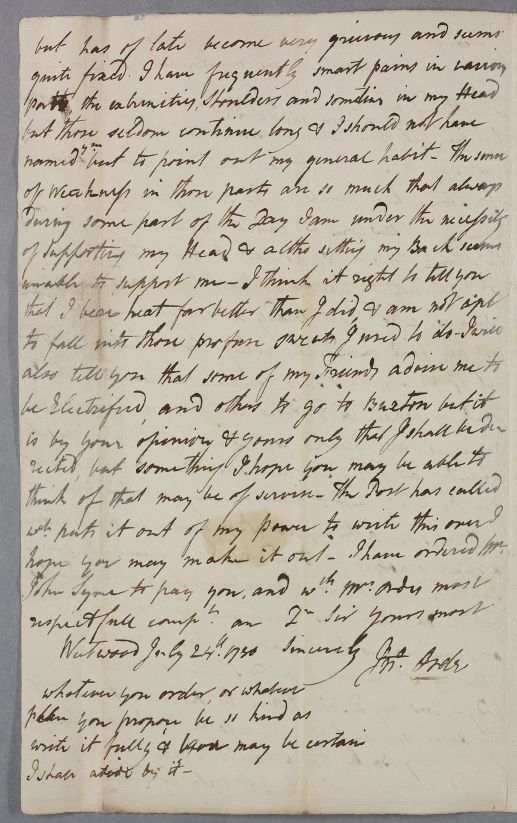 but has of late become very grievous and seems
quite fixed. I have frequently smart pains in various
parts, the extremities, Shoulders and sometims in my Head
but those seldom continue long & I should not have
named ym but to point out my general habit - The sense
of Weakness in those parts are so much that always
during some part of the Day I am under the necessity
of Supporting my Head & altho sitting my Back seems
unable to support me - I think it right to tell you
that I bear heat far better than I did & am not apt
to fall into those profuse sweats I used to do - I will
also tell you that some of my Friends advise me to
be Electrified, and others to go to Buxton but it
is by your opinion & yours only that I shall be di-
rected, but something I hope you may be able to
think of that may be of service - The Post has called
wch puts it out of my Power to write this over I
hope you may make it out - I have ordered Mr
John Syme to pay you, and wth Mrs Ordes most
respectfull compts am Dr Sir yours most
Westwood July 24th. 1780 Sincerely Jno. Orde
whatever you order, or whatever
plan you propose be so kind as
write it fully & may be certain
I shall abide by it -